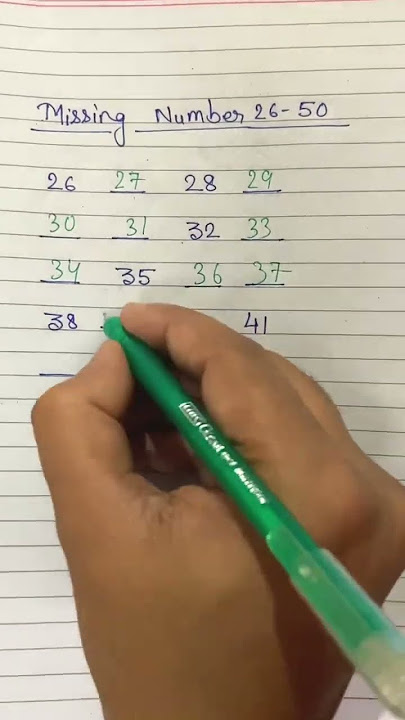 Missing Number 26-50
26 27 28 29
30 31 32 33
34 35 36 37
38 41